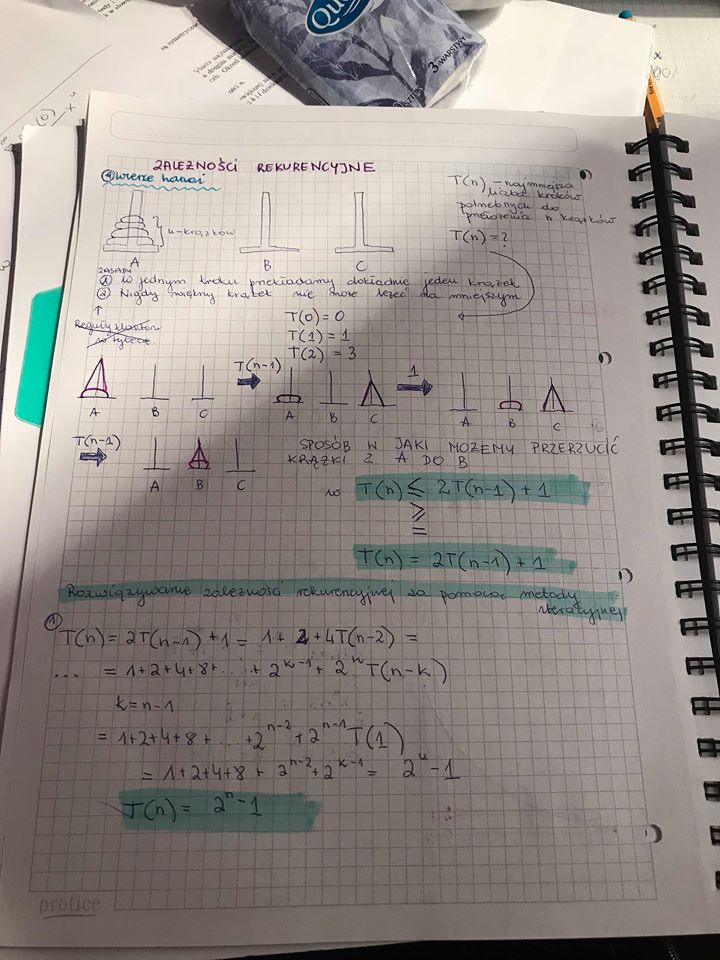 ZALEŻNOŚCI REKURENCYJNE
① wieże hanoi
T(n) - najmniejsza
liczba kroków
potrzebnych do
przełożenia n krążków
n-krążków
T(n) = ?
A B C
ZASADY
① W jednym kroku przekładamy dokładnie jeden krążek
② Nigdy większy krążek nie może leżeć na mniejszym
Reguły klasztoru
w tybecie
T(0) = 0
T(1) = 1
T(2) = 3
T(n-1) 1
A B C A B C A B C
T(n-1)
SPOSÓB W JAKI MOŻEMY PRZERZUCIĆ
KRĄŻKI Z A DO B
A B C
w T(n) ≤ 2T(n-1) + 1
≥
=
T(n) = 2T(n-1) + 1
Rozwiązywanie zależności rekurencyjnej za pomocą metody
iteracyjnej
①
T(n) = 2T(n-1) + 1 = 1 + 2 + 4T(n-2) =
... = 1+2+4+8+ ... + 2^(k-1) + 2^k T(n-k)
k = n-1
= 1+2+4+8+ ... +2^(n-2) + 2^(n-1) T(1)
= 1+2+4+8 + 2^(n-2) + 2^(k-1) = 2^n - 1
T(n) = 2^n - 1
profice
3 WARSTWY